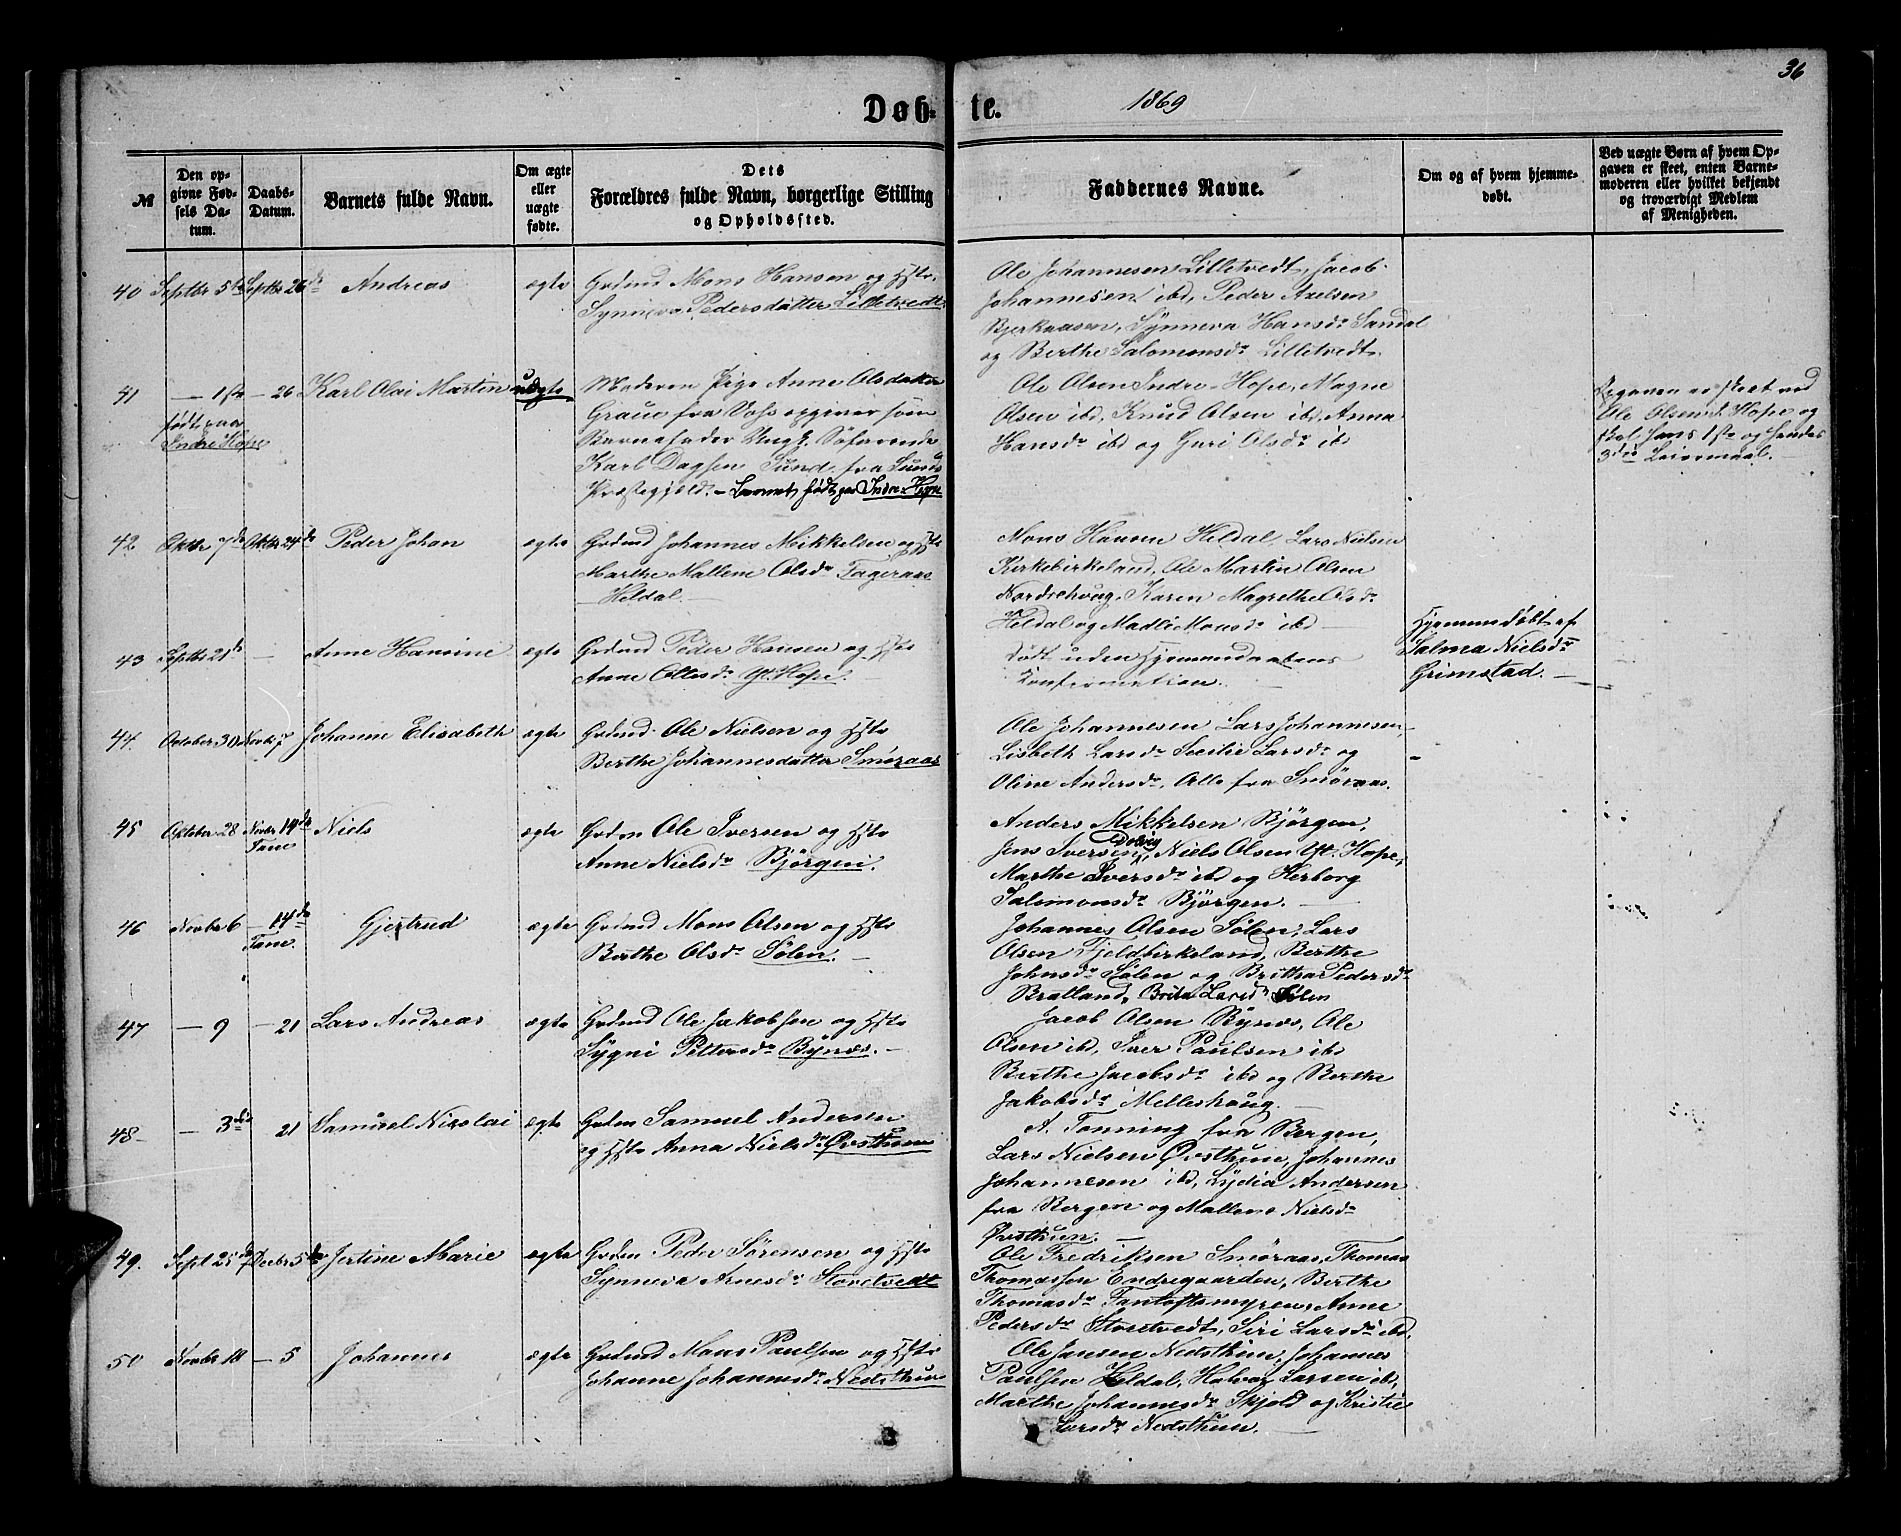 36
Døb-te. 1869
№
Den op-
givne Fød-
sels Da-
tum.
Daabs-
Datum.
Barnets fulde Navn.
Om ægte
eller
uægte
fødte.
Dets
Forældres fulde Navn, borgerlige Stilling
og Opholdssted.
Faddernes Navne.
Om og af hvem hjemme-
døbt.
Ved uægte Børn af hvem Op-
gaven er skeet, enten Barne-
moderen eller hvilket bekjendt
og troværdigt Medlem
af Menigheden.
40 Septbr 5te Septbr 26de Andreas ægte Grdmd Mons Hansen og Hstr.
Synneva Pedersdatter Lilletvedt
Ole Johannesen Lilletvedt, Jacob
Johannesen ibd, Peder Axelsen
Bjerkaasen, Synneva Hansdr Sandal
og Berthe Salomonsdr Lilletvedt.
41 — 1ste — 26 Karl Olai Martin uægte Moderen Pige Anne Olsdatter
født paa
Indre Hope
Graue fra Voss opgiver som
Barnefader Ungk. Søfarende
Karl Dagsen Sund fra Sunds
Præstegjeld. — Barnet født paa Indre Hope
Ole Olsen Indre-Hope, Magne
Olsen ibd, Knud Olsen ibd, Anna
Hansdr ibd og Guri Olsdr ibd
Opgaven er skeet ved
Ole Olsen I. Hope og
skal hans 1ste og hendes
3die Leiermaal.
42 Oktbr 7de Oktbr 24de Peder Johan ægte Grdmd Johannes Mikkelsen og Hstr
Marthe Mallene Olsdr Fageraas
Heldal.
Mons Hansen Heldal, Lars Nielsen
Kirkebirkeland, Ole Martin Olsen
Nordrehoug, Karen Magrethe Olsdr
Heldal og Madli Monsdr ibd
43 Septbr 21de — Anne Hansine ægte Grdmd Peder Hansen og Hstr
Anne Ollesdr Yt. Hope.
Død uden Hjemmedaabens
Konfirmation.
Hjemmedøbt af
Salmea Nielsdr
Grimstad. —
44. October 30 Novbr 7 Johanne Elisabeth ægte Grdmd Ole Nielsen og Hstr
Berthe Johannesdatter Smøraas
Ole Johannesen Lars Johannesen
Lisbeth Larsdr Secilie Larsdr og
Oline Andersdr, Alle fra Smøraas.
45 Oktober 28 Novbr 14de Niels ægte Grdm Ole Iversen og Hstr
Fane
Anne Nielsdr Bjørgen.
Anders Mikkelsen Bjørgen,
Jens Iversen Dolvig, Niels Olsen Yt. Hope,
Marthe Iversdr ibd og Herborg
Salomonsdr Bjørgen.
46 Novbr 6 — 14de Gjertrud ægte Grdmd Mons Olsen og Hstr
Fane
Berthe Olsdr Sølen. —
Johannes Olsen Sølen, Lars
Olsen Fjeldbirkeland, Berthe
Johnsdr Sølen og Brittha Pedersdr
Bratland, Brita Larsdr Sølen
47 — 9 — 21 Lars Andreas ægte Grdmd Ole Jakobsen og Hstr
Sygni Pettersdr Bynæs. —
Jacob Olsen Bynæs, Ole
Olsen ibd, Iver Paulsen ibd
Berthe Jacobsdr ibd og Berthe
Jakobsdr Melleshaug.
48 — 3die 21 Samuel Nicolai ægte Grdm Samuel Andersen
og Hstr Anna Nielsdr Øvsthun
A. Tonning fra Bergen,
Lars Nielsen Øvsthun, Johannes
Johannesen ibd, Lydia Andersen
fra Bergen og Mallene Nielsdr
Øvsthun. —
49. Sept 25de Decbr 5te Jertine Marie ægte Grdm Peder Sørensen og Hstr
Synneva Arnesdr Storetvedt
Ole Fredriksen Smøraas, Thomas
Thomassen Endregaarden, Berthe
Thomasdr Fantoftsmyren, Anne
Pedersdr Storetvedt, Siri Larsdr ibd.
50 Novbr 10 — 5 Johannes ægte Grdmd Mons Paulsen og Hstr
Johanne Johannesdr Nedsthun
Ole Jansen Nedsthun, Johannes
Paulsen Heldal, Halvor Larsen ibd,
Marthe Johannesdr Skjold og Kristie
Larsdr Nedsthun.